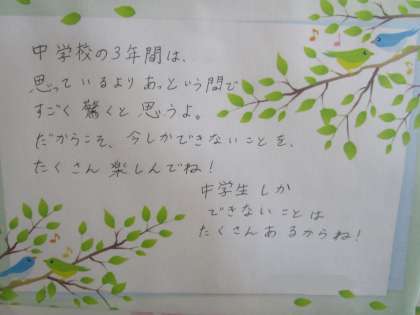 中学校の3年間は、
思っているよりあっという間で
すごく驚くと思うよ。
だからこそ、今しかできないことを、
たくさん楽しんでね!
中学生しか
できないことは
たくさんあるからね!